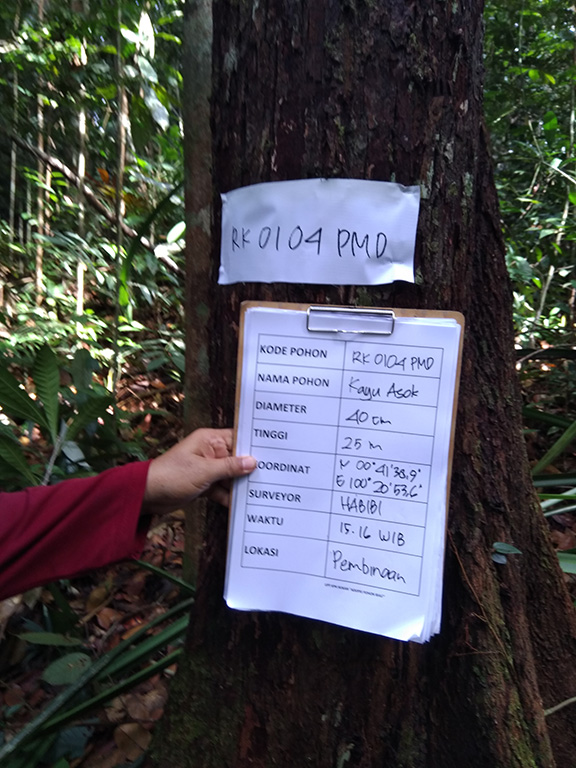 RK 0104 PMD
KODE POHON RK 0104 PMD
NAMA POHON Kayu Asok
DIAMETER 40 cm
TINGGI 25 m
OORDINAT N 00°41'38,9"
E 100°20'53,6"
SURVEYOR HABIBI
WAKTU 15.16 WIB
LOKASI Pembinaan